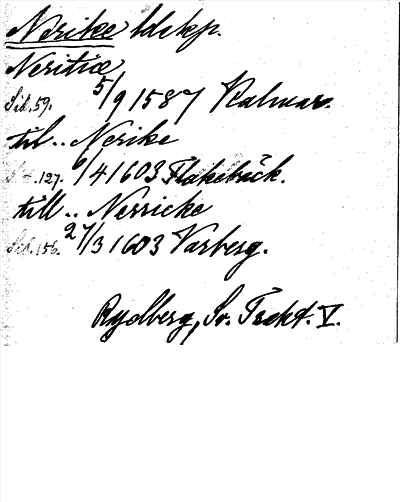 Nerike ldskp.
Neritiæ
Sid. 59. 5/9 1587 Kalmar.
til .. Nerike
Sid. 127. 6/4 1603 Flakebäck.
till .. Nerricke
Sid. 156. 27/3 1603 Varberg.
Rydberg, Sv. Trakt. V.